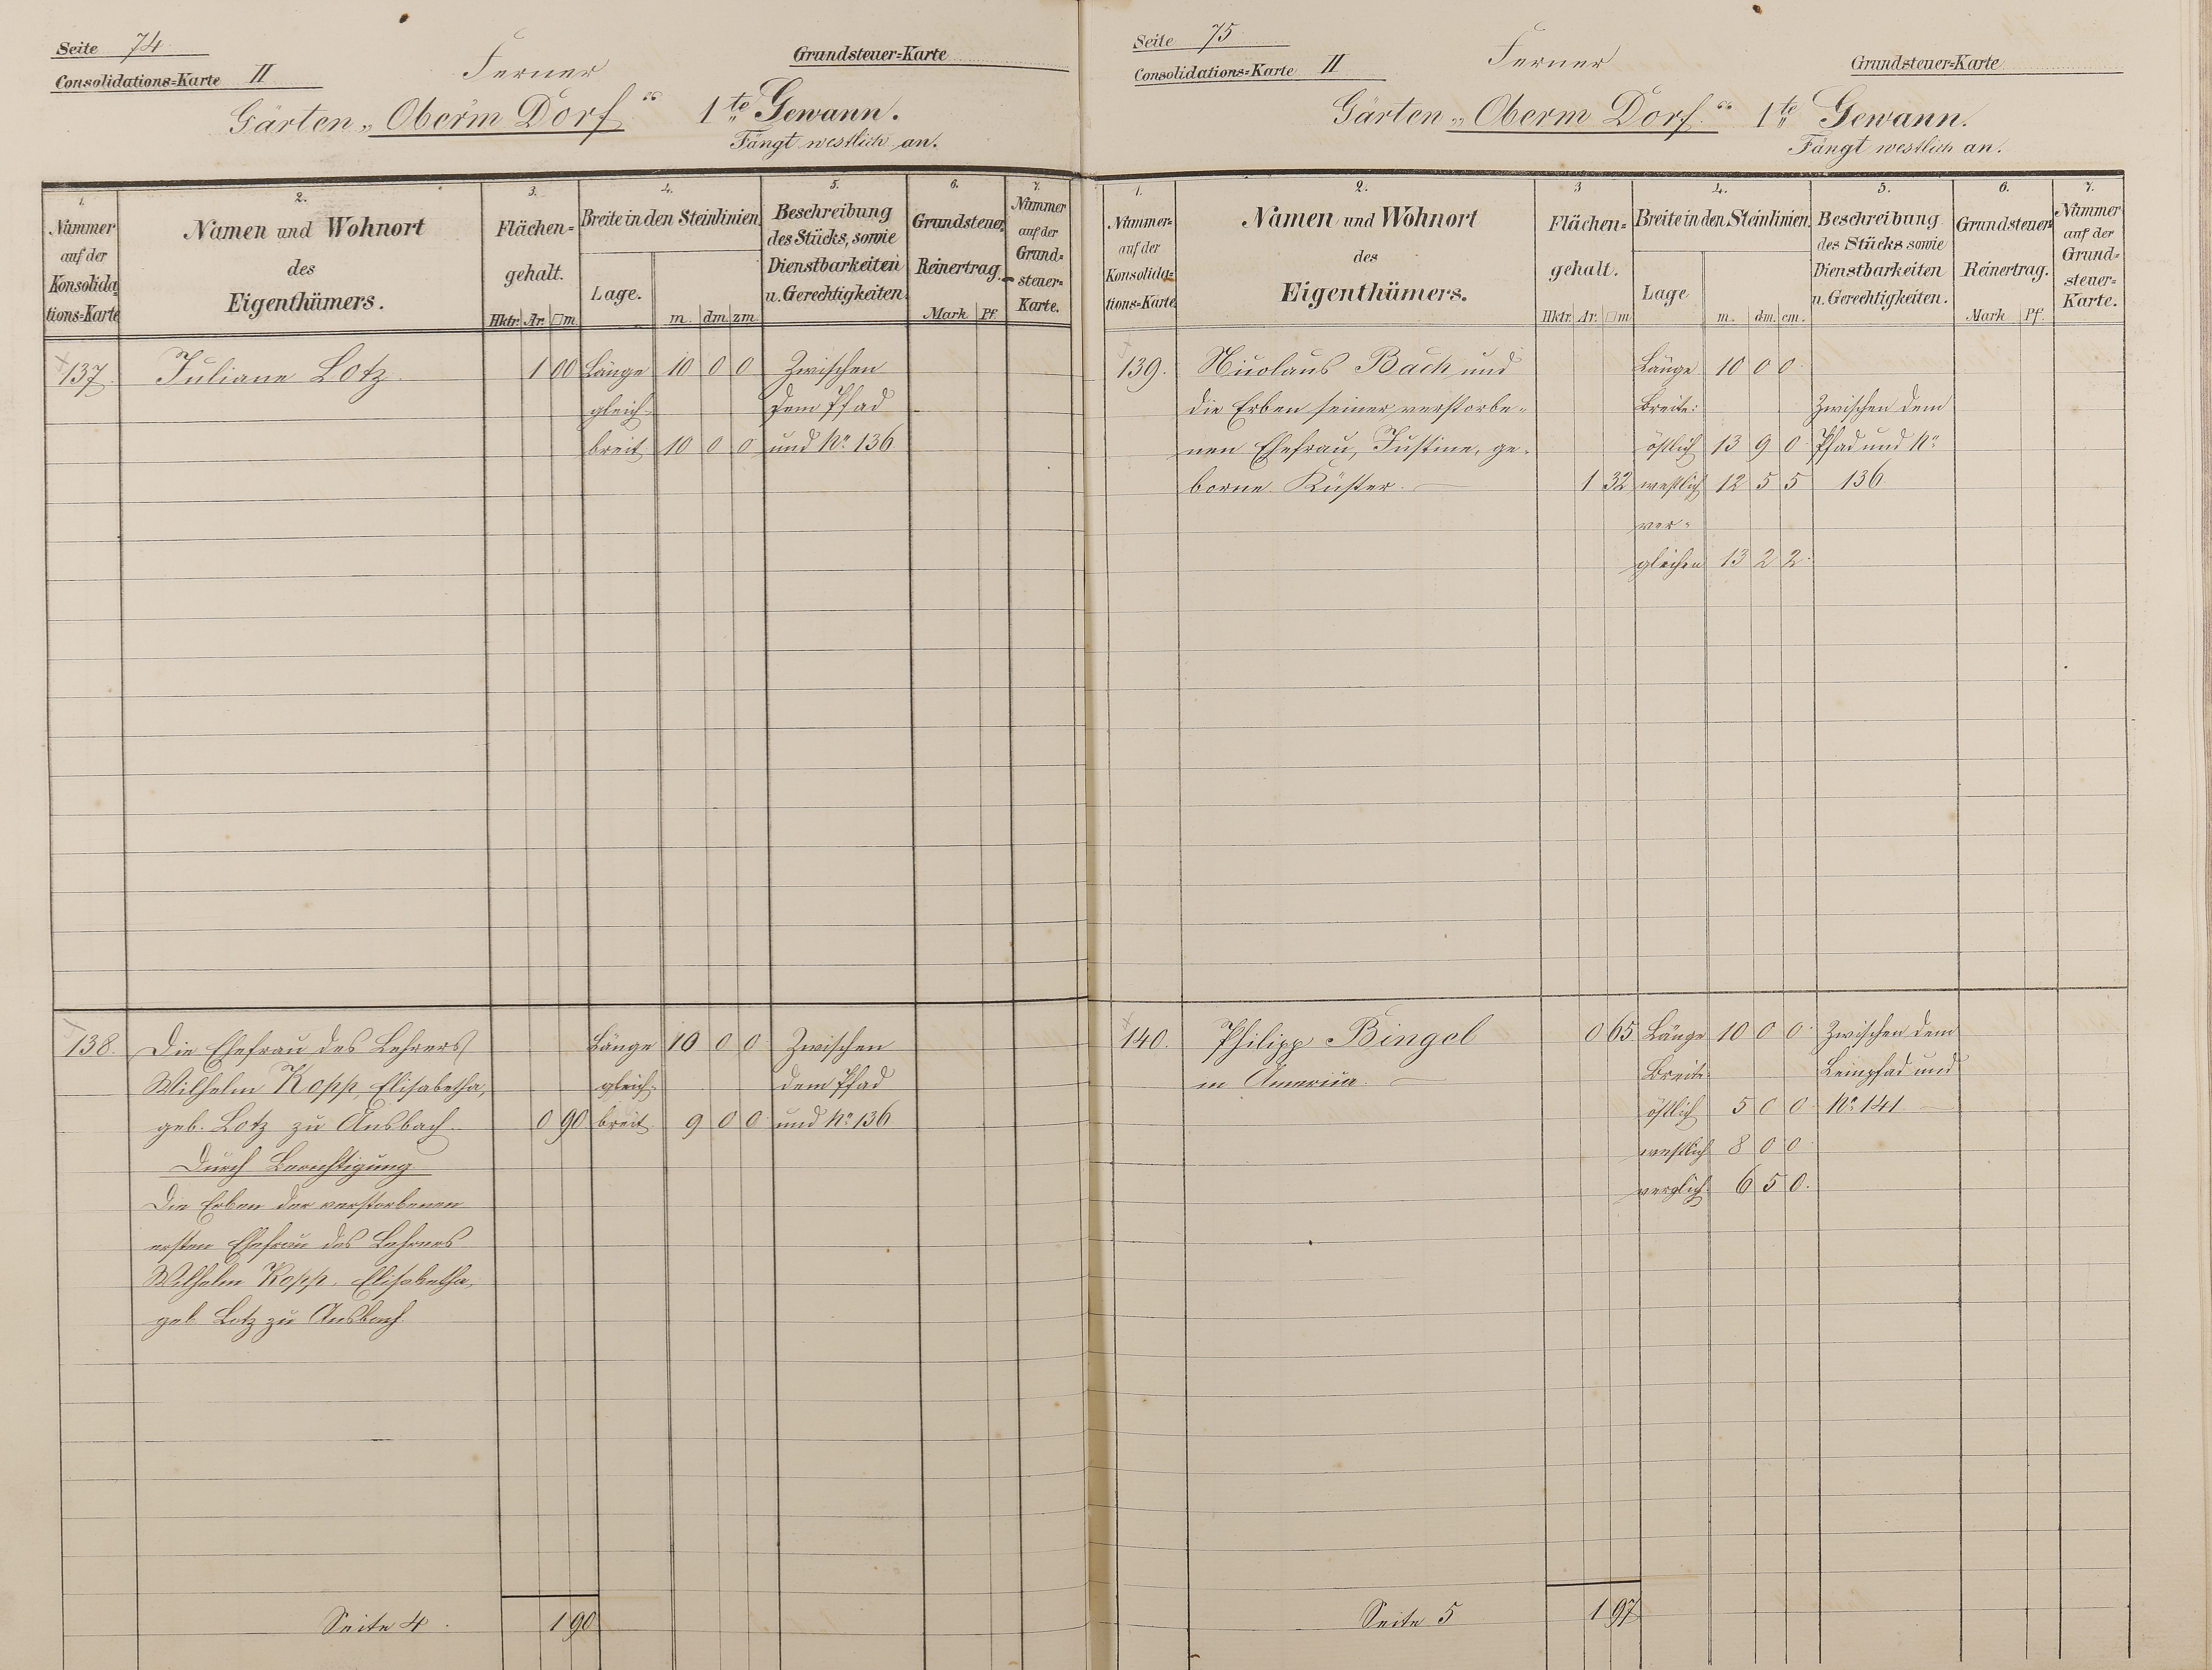 Seite 74
Consolidations=Karte II
Ferner
Grundsteuer=Karte
Gärten „Oberm Dorf“ 1te Gewann.
Fängt westlich an.
1.
Nummer
auf der
Konsolida=
tions=Karte
2.
Namen und Wohnort
des
Eigenthümers.
3.
Flächen=
gehalt.
Hktr. Ar. □m
4.
Breite in den Steinlinien.
Lage.
m. dm zm
5.
Beschreibung
des Stücks, sowie
Dienstbarkeiten
u. Gerechtigkeiten.
6.
Grundsteuer
Reinertrag.
Mark Pf.
7.
Nummer
auf der
Grund=
steuer=
Karte.
137. Juliane Lotz 1 00 Länge 10 0 0 Zwischen
gleich dem Pfad
breit 10 0 0 und No 136
138. Die Ehefrau des Lehrers Länge 10 0 0 Zwischen
Wilhelm Kopp, Elisabetha, gleich= dem Pfad
geb. Lotz zu Ausbach. 0 90 breit 9 0 0 und No 136
Durch Berichtigung
Die Erben der verstorbenen
ersten Ehefrau des Lehrers
Wilhelm Kopp, Elisabetha,
geb. Lotz zu Ausbach.
Seite 4. 1 90
Seite 75
Consolidations=Karte II
Ferner
Grundsteuer=Karte
Gärten „Oberm Dorf“ 1te Gewann.
Fängt westlich an.
1.
Nummer=
auf der
Konsolida=
tions=Karte
2.
Namen und Wohnort
des
Eigenthümers.
3
Flächen=
gehalt.
Hktr. Ar. □m
4.
Breite in den Steinlinien.
Lage
m. dm. cm.
5.
Beschreibung
des Stücks sowie
Dienstbarkeiten
u. Gerechtigkeiten.
6.
Grundsteuer=
Reinertrag.
Mark Pf.
7.
Nummer
auf der
Grund=
steuer=
Karte.
139. Nicolaus Bach und Länge 10 0 0
die Erben seiner verstorbe= Breite: Zwischen dem
nen Ehefrau, Justine, ge= östlich 13 9 0 Pfad und No
borne Küster. 1 32 westlich 12 5 5 136
ver=
glichen 13 2 2
140. Philipp Bingel 0 65 Länge 10 0 0 Zwischen dem
in America. Breite Leinpfad und
östlich 5 0 0 No 141
westlich 8 0 0
verglich. 6 5 0.
Seite 5 1 97